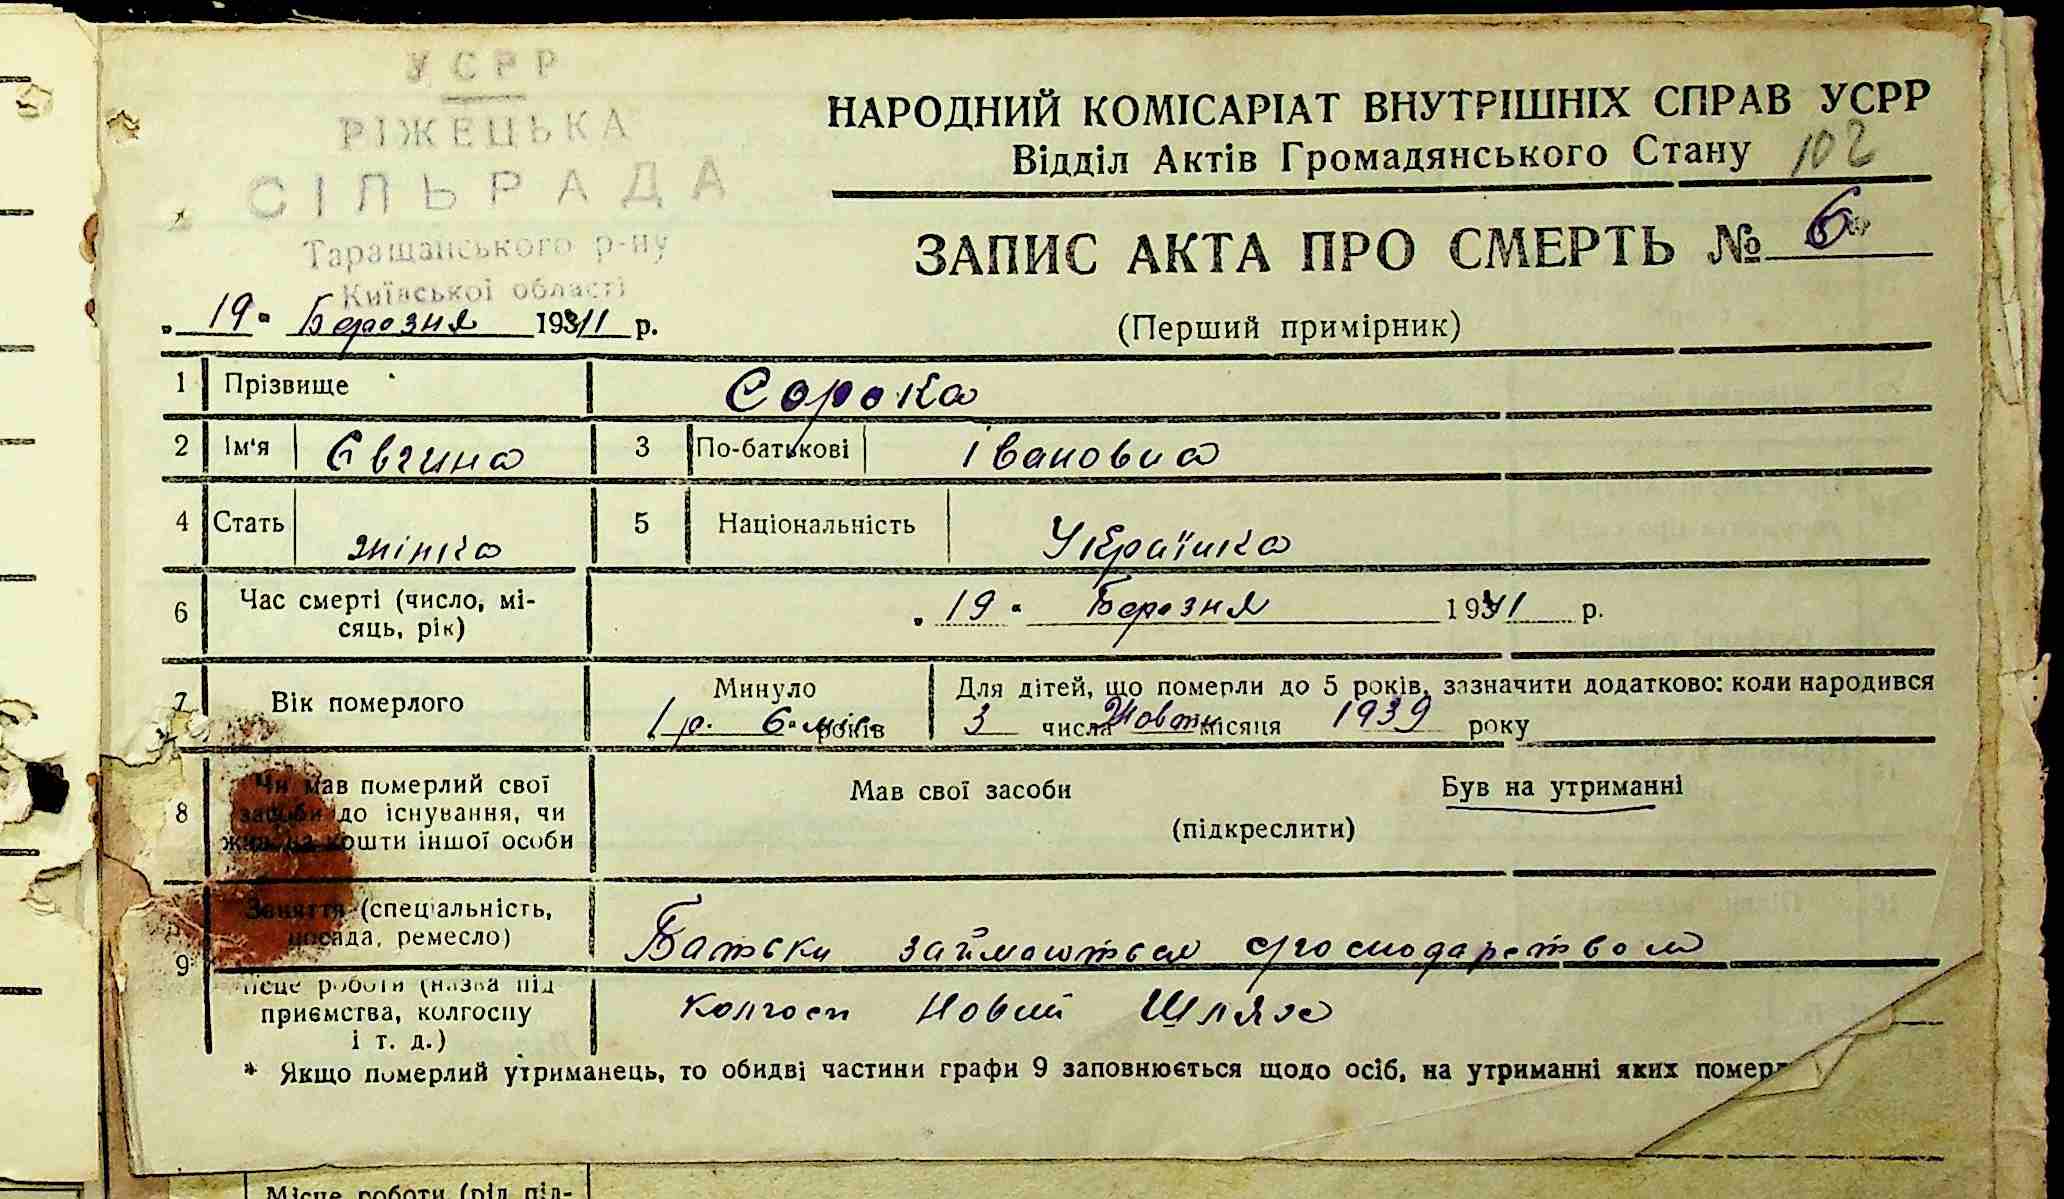 УСРР
РІЖЕЦЬКА
СІЛЬРАДА
Таращанського р-ну
Київської області
„19“ Березня 1941 р.
НАРОДНИЙ КОМІСАРІАТ ВНУТРІШНІХ СПРАВ УСРР
Відділ Актів Громадянського Стану 102
ЗАПИС АКТА ПРО СМЕРТЬ № 6
(Перший примірник)
1 Прізвище Сорока
2 Ім'я Євгина 3 По-батькові Івановна
4 Стать жінка 5 Національність Українка
6 Час смерті (число, мі-
сяць, рік) „19“ Березня 1941 р.
7 Вік померлого Минуло 1 р. 6 місів років Для дітей, що померли до 5 років, зазначити додатково: коли народився
3 числа Жовтн місяця 1939 року
8 Чи мав померлий свої
засоби до існування, чи
жив на кошти іншої особи
Мав свої засоби Був на утриманні
(підкреслити)
9 Заняття (спеціальність,
посада, ремесло) Батьки займаються господарством
Місце роботи (назва під
приємства, колгоспу
і т. д.) колгосп Новий Шлях
* Якщо померлий утриманець, то обидві частини графи 9 заповнюється щодо осіб, на утриманні яких помер
Місце роботи (рід під-